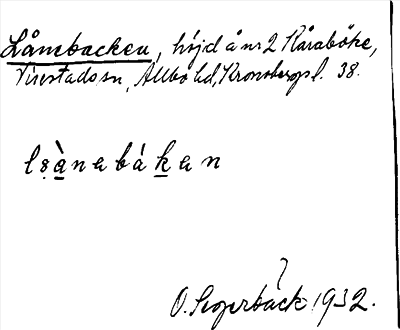 Lånebacken, höjd å nr 2 Råraböke,
Virestads sn, Allbo hd, Kronobergs l. 38.
lsànabákan
O. Segerbäck 1932.